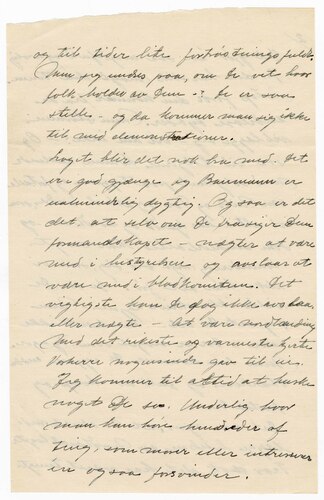 og til tider lite fortrøstningsfuld.
Men jeg undres paa, om De vet hvor
folk holder av Dem -? De er saa
stille - og da kommer man sig ikke
til med demonstrationer.
Noget blir det nok fra med. Det
er i god gjænge og Baumann er
ualmindelig dygtig. Og saa er det
det, at selv om De frasiger Dem
formandskapet - nægter at være
med i hustyrelsen og avslaar at
være med i bladkomiteen. Det
vigtigste kan De dog ikke avslaa
eller nægte - At være nordlænding
med det rikeste og varmeste hjerte
Vorherre nogensinde gav til eie.
Jeg kommer til altid at huske
noget De sa. Underlig hvor
man kan høre hundreder af
ting, som morer eller interesserer
en og saa forsvinder.